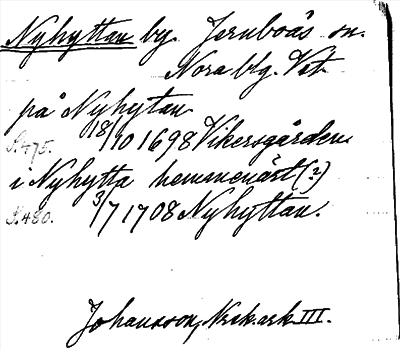 Nyhyttan by. Jernboås sn.
Nora blg. Vst.
på Nyhytan
S. 475. 18/10 1698 Vikersgården
i Nyhytta hemmenäst (?)
S. 480. 3/7 1708 Nyhyttan.
Johansson, Nrk. ark III.